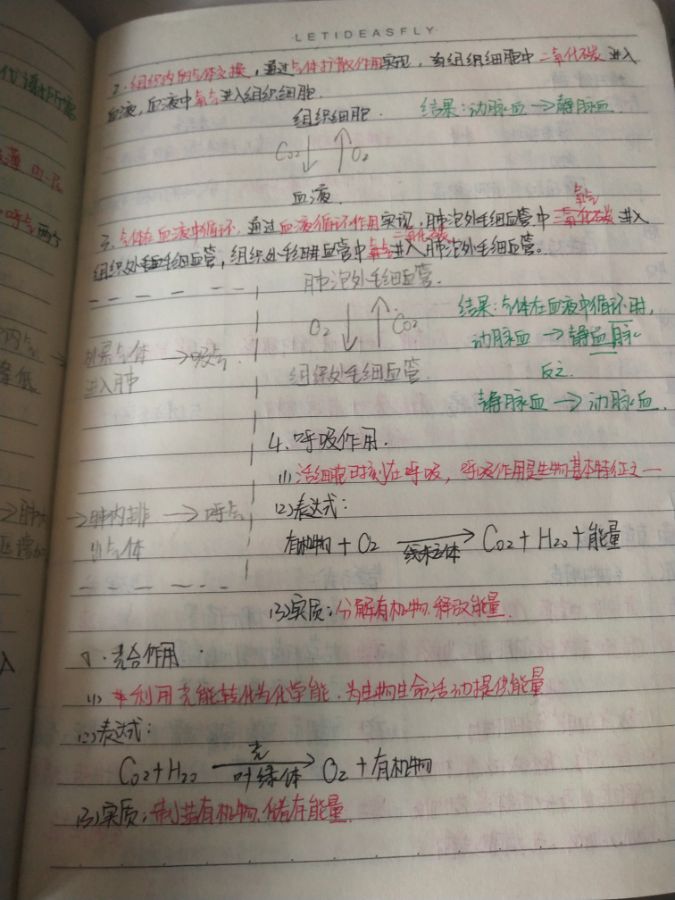 LETIDEASFLY
2.组织内的气体交换，通过气体扩散作用实现，当组织细胞中二氧化碳进入
血液，血液中氧气进入组织细胞.
组织细胞
结果：动脉血→静脉血
CO2 ↓ ↑ O2
血液.
氧气
3.气体在血液中循环，通过血液循环作用实现，肺泡外毛细血管中二氧化碳进入
二氧化碳
组织处毛细血管，组织处毛细血管中氧气进入肺泡外毛细血管。
肺泡外毛细血管.
O2 ↓ ↑ CO2
结果：气体在血液中循环时，
动脉血→静脉
外界气体→吸气
进入肺
组织处毛细血管
反之.
静脉血→动脉血.
4.呼吸作用.
(1)活细胞时刻在呼吸，呼吸作用是生物基本特征之一
(2)表达式：
→肺内排→呼气
出气体
有机物+O2 →线粒体 CO2+H2O+能量
(3)实质：分解有机物.释放能量.
光合作用.
(1)利用光能转化为化学能.为生物生命活动提供能量
(2)表达式：
光
CO2+H2O →叶绿体 O2+有机物
(3)实质：制造有机物.储存能量.